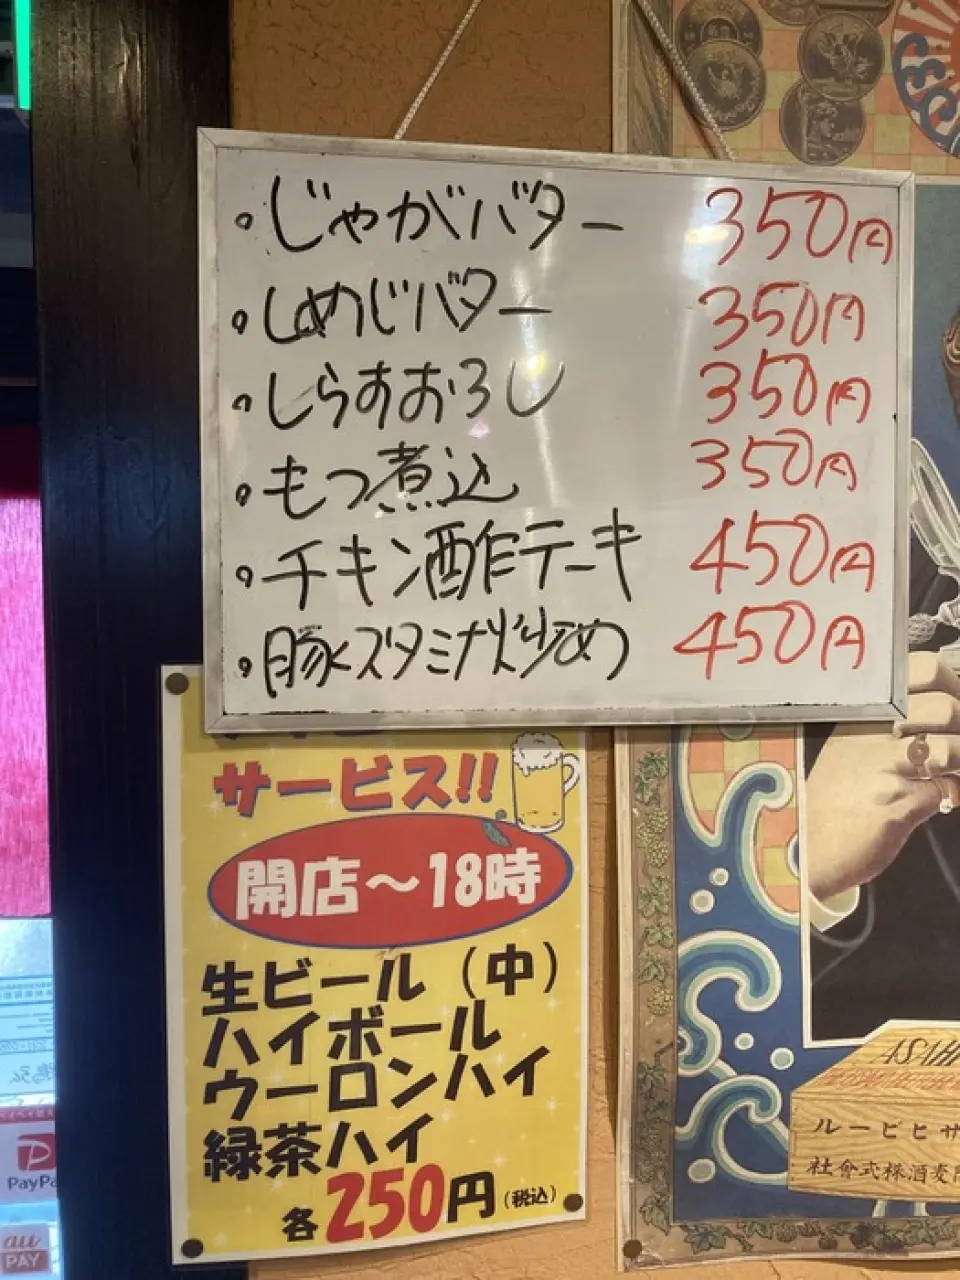 ・じゃがバター 350円
・しめじバター 350円
・しらすおろし 350円
・もつ煮込 350円
・チキン酢テーキ 450円
・豚スタミナ炒め 450円
サービス!!
開店～18時
生ビール（中）
ハイボール
ウーロンハイ
緑茶ハイ
各250円(税込)
PayPa
au
PAY
ASAH
ルービヒサ
社會式株酒麦